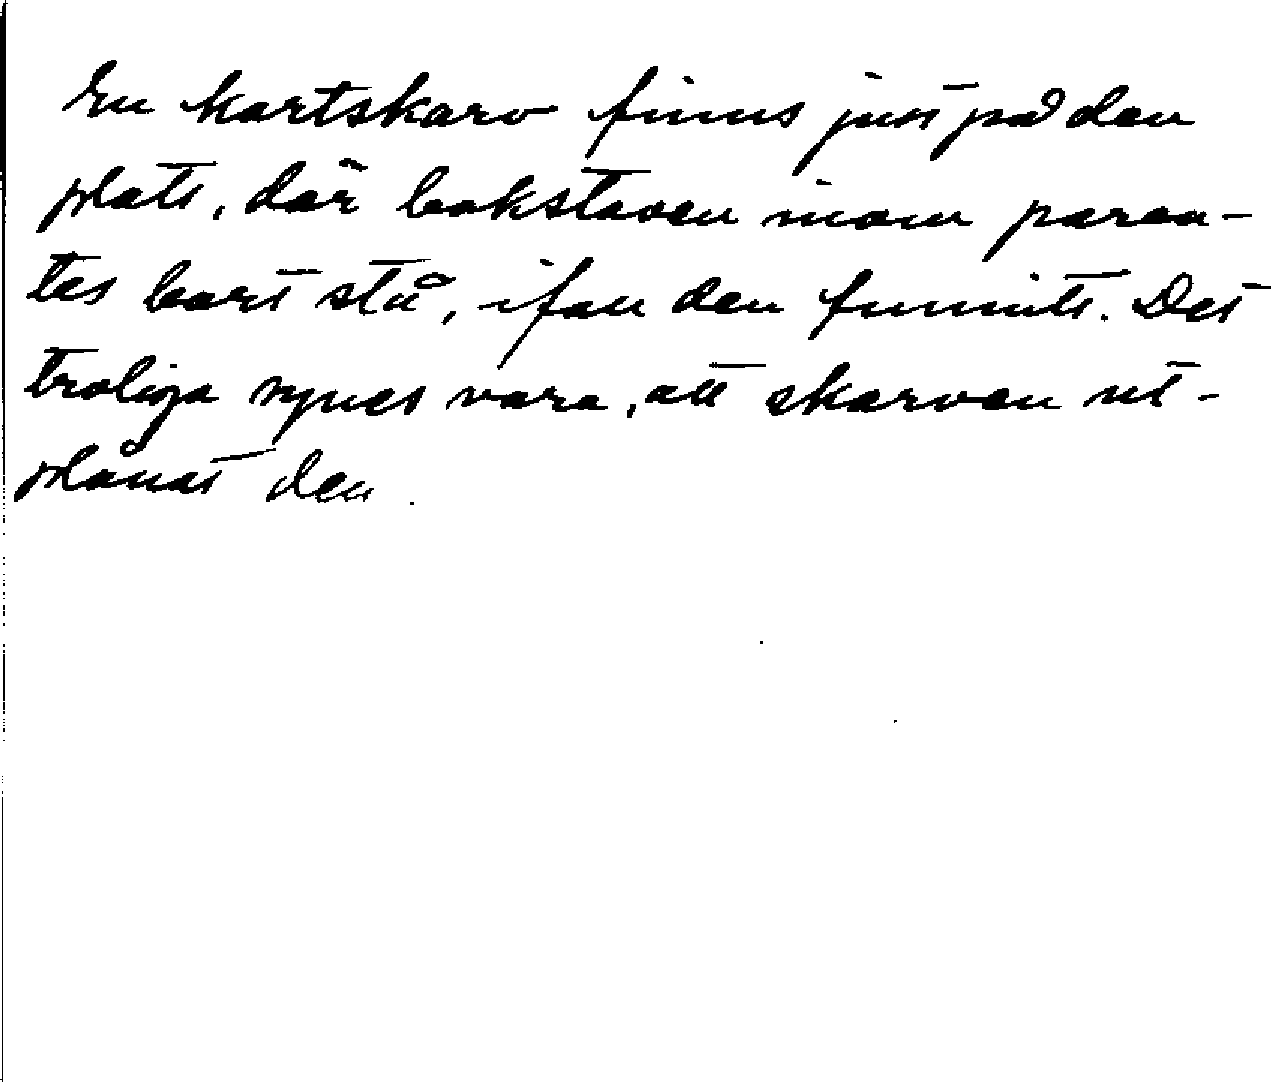 En kartskarv finns just på den
plats, där bokstaven inom paren-
tes bort stå, ifall den funnits. Det
troliga synes vara, att skarven ut-
plånat den.